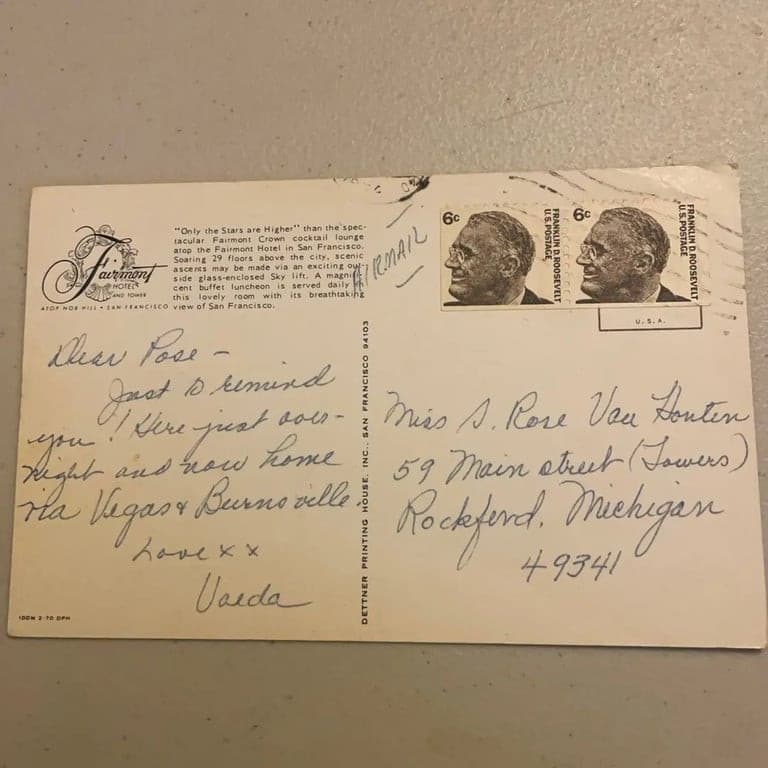 Fairmont
HOTEL
AND TOWER
ATOP NOB HILL • SAN FRANCISCO
"Only the Stars are Higher" than the spec-
tacular Fairmont Crown cocktail lounge
atop the Fairmont Hotel in San Francisco.
Soaring 29 floors above the city, scenic
ascents may be made via an exciting out-
side glass-enclosed Sky lift. A magnifi-
cent buffet luncheon is served daily in
this lovely room with its breathtaking
view of San Francisco.
AIRMAIL
6c
FRANKLIN D. ROOSEVELT
U.S. POSTAGE
6c
FRANKLIN D. ROOSEVELT
U.S. POSTAGE
U.S.A.
Dear Rose –
Just to remind
you! Here just over-
night and now home
via Vegas & Burnsville.
Love x x
DETTNER PRINTING HOUSE, INC., SAN FRANCISCO 94103
Miss S. Rose Van Houten
59 Main street (Towers)
Rockford, Michigan
49341
100M 2-70 DPH